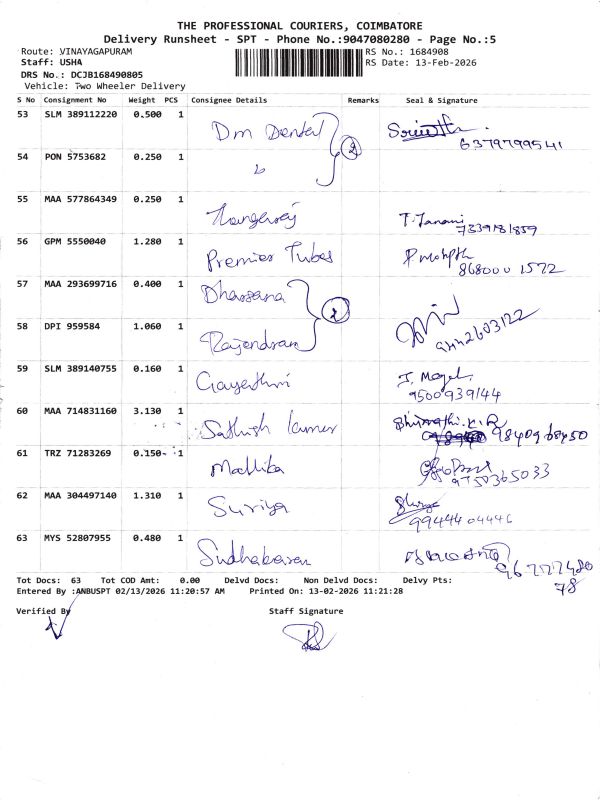 THE PROFESSIONAL COURIERS, COIMBATORE
Delivery Runsheet - SPT - Phone No.:9047080280 - Page No.:5
Route: VINAYAGAPURAM RS No.: 1684908
Staff: USHA RS Date: 13-Feb-2026
DRS No.: DCJB168490805
Vehicle: Two Wheeler Delivery
S No Consignment No Weight PCS Consignee Details Remarks Seal & Signature
53 SLM 389112220 0.500 1 Dm Dental 2 6379799541
54 PON 5753682 0.250 1
55 MAA 577864349 0.250 1 T. Janani
56 GPM 5550040 1.280 1 Premier Tubes 868000 1572
57 MAA 293699716 0.400 1 Dharsana
58 DPI 959584 1.060 1 Rajendran
59 SLM 389140755 0.160 1 Gayathri 9500939144
60 MAA 714831160 3.130 1 Sathish kumar 9840968450
61 TRZ 71283269 0.150 1 Mallika 9750365033
62 MAA 304497140 1.310 1 Suriya 99444 04446
63 MYS 52807955 0.480 1 Sudhakaran
Tot Docs: 63 Tot COD Amt: 0.00 Delvd Docs: Non Delvd Docs: Delvy Pts:
Entered By :ANBUSPT 02/13/2026 11:20:57 AM Printed On: 13-02-2026 11:21:28
Verified By Staff Signature